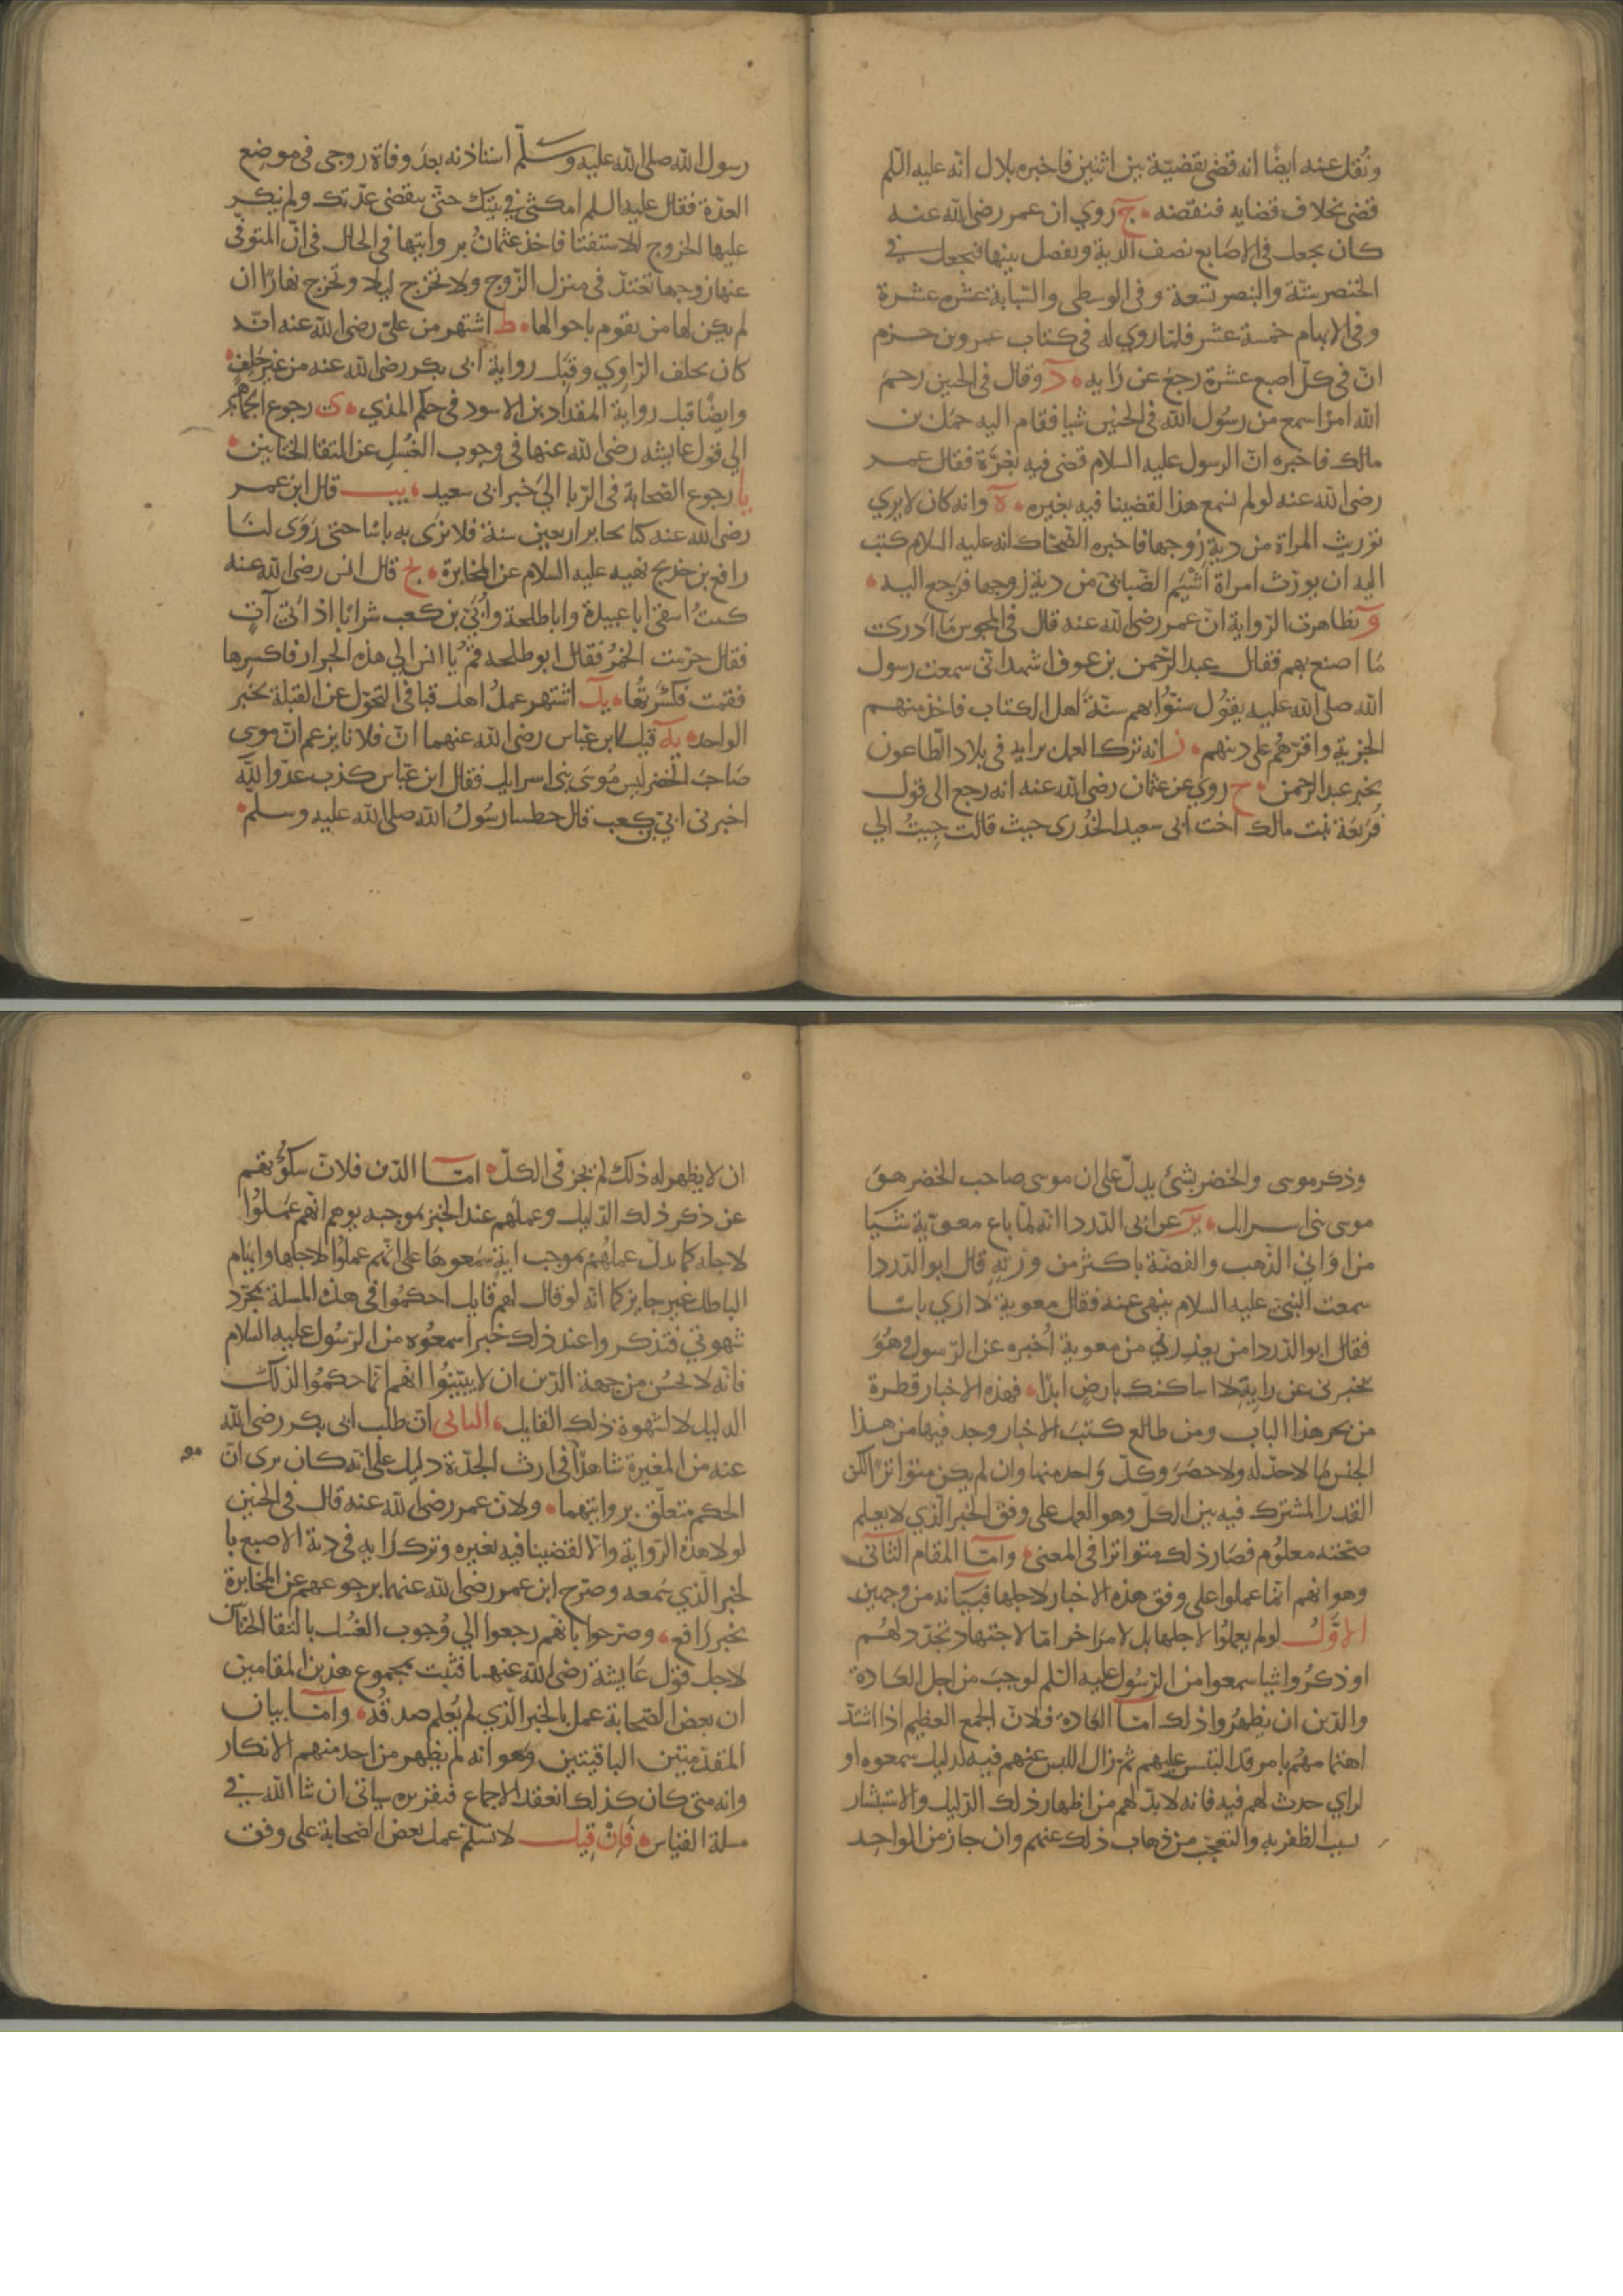 ونُقل عنه ايضًا انه قضى بقضيّة بين اثنين فاخبره بلال انّه عليه السّلم
قضى بخلاف قضايه فنقضه ۰ ج روي ان عمر رضى الله عنه
كان يجعل فى الاصابع نصف الدية ويفصل بينها فيجعل في
الخنصر ستّة والبنصر تسعة وفى الوسطى والسّبابة عشرة عشرة
وفى الابهام خمسة عشر فلمّا روي له فى كتاب عمرو بن حزم
انّ فى كلّ اصبع عشرة رجع عن رَايه ۰ د وقال فى الجنين رحمَ
الله امرًا سمع من رسُول الله فى الجنين شيا فقام اليه حمَل بن
مالك فاخبره انّ الرسول عليه السلام قضى فيه بغرّة فقال عمر
رضى الله عنه لو لم نسمع هذا لقضينا فيه بغيره ۰ ه وانه كان لا يري
توريث المراة من دية زوجها فاخبره الضّحّاك انه عليه السلام كتب
اليه ان يورّث امراة اَشْيَم الضّبابىّ من دية زوجها فرجع اليه ۰
و تظاهرت الرّواية انّ عمر رضى الله عنه قال فى المجوس مَا ادري
مَا اصنع بهم فقال عبد الرّحمن بن عوف اشهد انّى سمعت رسول
الله صلى الله عليه يقوُل سنّوُا بهم سنّةَ اهل الكتاب فاخذ منهم
الجزية واقرّهُم على دينهم ۰ ز انه ترك العمل برايه فى بلاد الطّاعون
بخبر عبد الرحمن ۰ ح روي عن عثمان رضى الله عنه انه رجع الى قول
فُرَيعَة بنت مالك اخت ابى سعيد الخُدرى حيث قالت جيتُ الي
رسول الله صلى الله عليه وسلّم استاذنه بعدَ وفاة زوجى فى موضِع
العدّة فقال عليه السلم امكثى فى بيتك حتّى ينقضى عدّتك ولم ينكر
عليها الخروج للاستفتا فاخذ عثمانُ بروايتها فى الحال فى انّ المتوفّى
عنها زوجها تعتدّ فى منزل الزّوج ولا تخرج ليلا وتخرج نهارًا ان
لم يكن لها من يقوم باحوالها ۰ ط اشتهر من علىّ رضى الله عنه انّه
كان يحلف الرّاوِي وقَبِلَ رواية ابى بكر رضى الله عنه من غير حَلِفٍ ۰
وايضًا قبل رواية المقداد بن الاسود فى حكم المذي ۰ ى رجوع الجماهير
الي قول عايشه رضى الله عنها فى وجوب الغُسْلِ عن التقا الختانين ۰
يا رجوع الصّحابة فى الرّبا الي خبر ابى سعيد ۰ يب قال ابن عمر
رضى الله عنه كنا نخابر اربعين سنة فلا نرى به باسًا حتى رَوَى لنَا
رافع بن خديج نهيه عليه السلام عن المخابرة ۰ يج قال انس رضى الله عنه
كنتُ اسقى ابا عبيدة وابا طلحة واُبَىّ بن كعب شرابًا اذ اَتىَ آتٍ
فقال حرّمت الخمرُ فقال ابو طلحه قُمْ يا انس الى هذه الجرار فاكسِرها
فقمت فكسّرتُها ۰ يد اشتهر عملُ اهل قبا فى التحوّل عن القبلة بخبر
الواحد ۰ يه قيل لابن عبّاس رضى الله عنهما انّ فلانا يزعم انّ موسى
صَاحبَ الخضر ليس مُوسَى بنى اسراييل فقال ابن عبّاس كذب عدّو الله
اخبرنى ابىّ بن كعب قال خطبنا رسُولُ الله صلى الله عليه وسلم ۰
وذكر موسى والخضر بشئ يدلّ على ان موسى صاحب الخضر هوَ
موسى بنى اسرايل ۰ يو عن ابى الدّردا انّه لمّا باع معويّة شَيَا
من اوَانِي الذّهب والفضّة باكثر من وزنهِ قال ابو الدّردا
سمعت النبىّ عليه السلام ينهى عنه فقال معوية لا ارَي باسًا
فقال ابو الدّردا من يعذرني من معوية اُخبره عن الرّسول وهُوَ
يخبرنى عن رايهِ لا اساكنك بارضٍ ابدًا ۰ فهذه الاخبار قطرة
من بحر هذا الباب ومن طالع كتبَ الاخبار وجد فيها من هذا
الجنس مَا لا حدّ له ولا حصَر وكلّ وَاحد منها وان لم يكن متواترًا لكن
القدر المشترك فيه بين الكلّ وهو العمل على وفق الخبر الّذي لا يعلم
صحّته معلوُم فصَار ذلك متواترا فى المعنى ۰ وامّا المقام الثّانى
وهو انهم انّما عملوا على وفق هذه الاخبار لاجلها فبيَانه من وجهين
الاوَّلُ لو لم يعملوُا لاجلها بل لامرَ اخر امّا لاجتهاد تجدّد لهُم
او ذكرُوا شيا سمعوا من الرّسُول عليه السّلم لوجبَ من اجل العَادة
والدّين ان يظهِرُوا ذلك امّا العَادة فلانّ الجمع العظيم اذا اشتدّ
اهتمامهُم بامر قد التبس عليهم ثم زال اللبس عنهم فيه لدليل سمعوه او
لراي حدث لهم فيه فانه لا بدّ لهم من اظهار ذلك الدّليل والاستبشار
بسبب الظفر بهِ والتعجّب من ذهاب ذلك عنهم وان جاز من الواحِد
ان لا يظهر له ذلك لم يجز فى الكلّ ۰ امّا الدّين فلانّ سكوُتَهم
عن ذكر ذلك الدّليل وعملَهم عند الخبر بموجبه يوهم انّهم عَملُوا
لاجله كما يدلّ عملهُم بموجب ايةٍ سَمعوهَا على انّهم عملوُا لاجلها وايهام
الباطل غير جايز كما انّه لو قال لهم قايل احكموُا فى هذه المسلة بمجرّد
شهوتي فتذكروا عند ذلك خبرا سمعوُه من الرّسُول عليه السلام
فانّه لا يحسُن من جهة الدّين ان لا يبيّنوُا انّهم انّما حكموُا لذلك
الدليل لا لشهوة ذلك القايل ۰ الثانى انّ طلب ابى بكر رضى الله
عنه من المغيرة شاهدًا فى ارث الجدّة دليل على انّه كان يرى انّ
الحكم متعلّق بروايتهما ۰ ولانّ عمر رضى الله عنه قال فى الجنين
لولا هذه الرّواية والّا لقضينا فيه بغيره وترك رَايه فى دية الاصبع با
لخبر الّذي سَمعه وصرّح ابن عمر رضى الله عنهما برجوعهم عن المخابرة
بخبر رَافع ۰ وصرّحوا بانّهم رجعوا الي وُجوب الغُسل بالتقا الختانين
لاجل قول عَايشة رضى الله عنهما فثبت بمجموع هذين المقامين
ان بعض الصّحابة عمل بالخبر الّذي لم يُعلم صدقُه ۰ وامّا بيان
المقدّمتين الباقيتين وهو انه لم يظهر من احد منهم الانكار
وانه متى كان كذلك انعقد الاجماع فتقريره سياتى ان شا الله في
مسلة القياس ۰ فَاِنْ قيل لا نسلّم عمل بعض الصّحابة على وفق